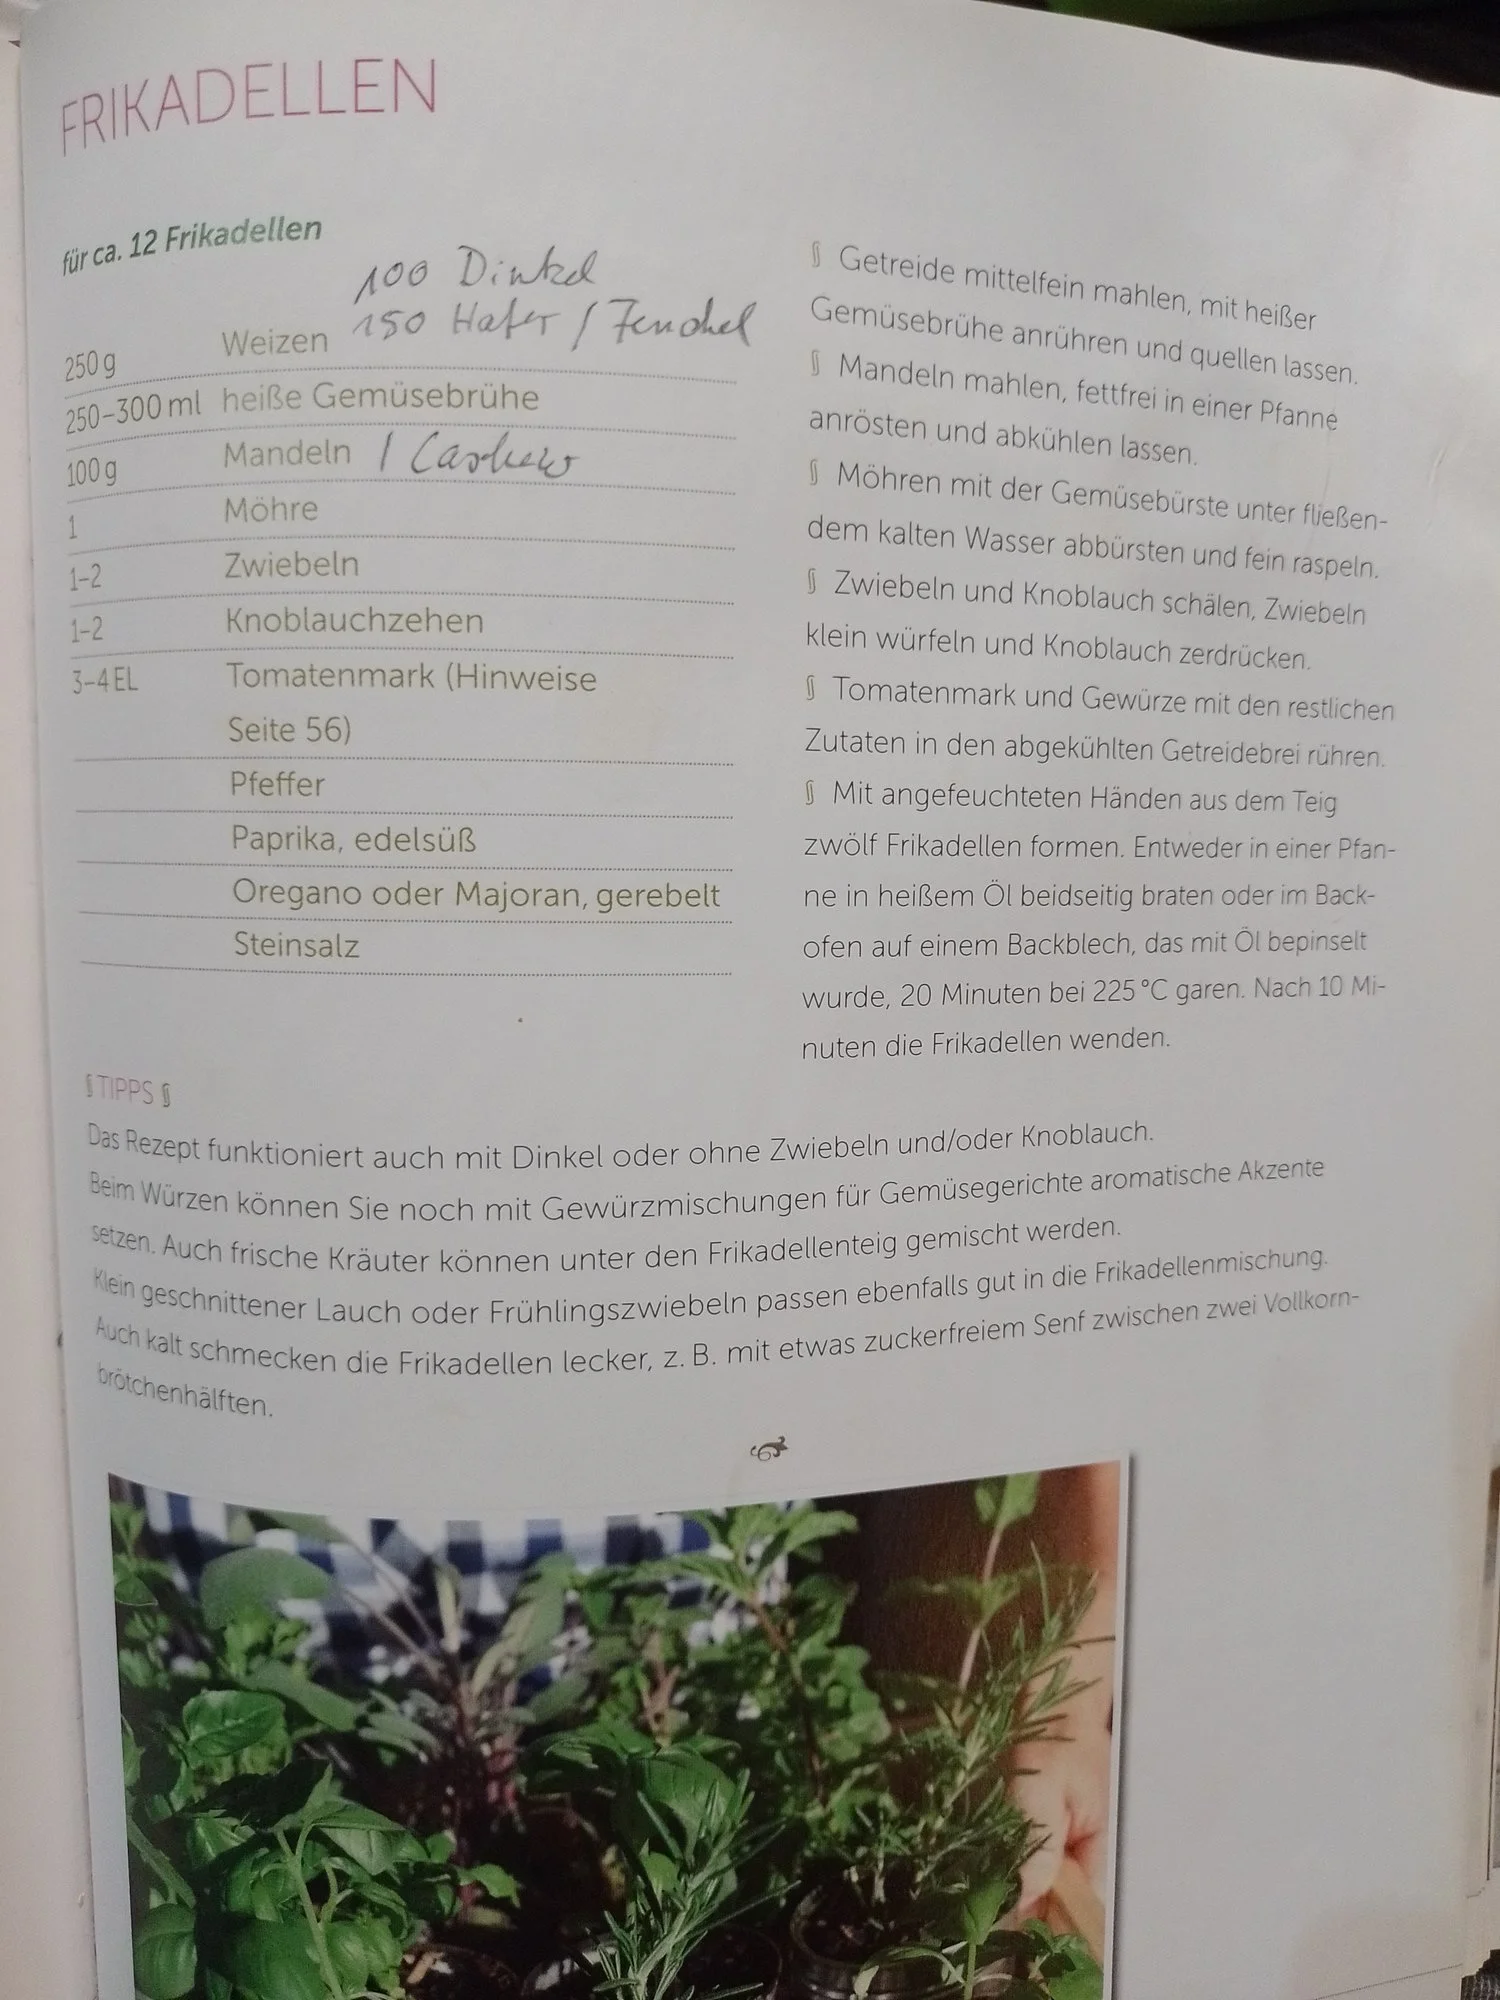 FRIKADELLEN
für ca. 12 Frikadellen
100 Dinkel
150 Hafer / Fenchel
250 g Weizen
250–300 ml heiße Gemüsebrühe
100 g Mandeln / Cashew
1 Möhre
1–2 Zwiebeln
1–2 Knoblauchzehen
3–4 EL Tomatenmark (Hinweise
Seite 56)
Pfeffer
Paprika, edelsüß
Oregano oder Majoran, gerebelt
Steinsalz
§ Getreide mittelfein mahlen, mit heißer
Gemüsebrühe anrühren und quellen lassen.
§ Mandeln mahlen, fettfrei in einer Pfanne
anrösten und abkühlen lassen.
§ Möhren mit der Gemüsebürste unter fließen-
dem kalten Wasser abbürsten und fein raspeln.
§ Zwiebeln und Knoblauch schälen, Zwiebeln
klein würfeln und Knoblauch zerdrücken.
§ Tomatenmark und Gewürze mit den restlichen
Zutaten in den abgekühlten Getreidebrei rühren.
§ Mit angefeuchteten Händen aus dem Teig
zwölf Frikadellen formen. Entweder in einer Pfan-
ne in heißem Öl beidseitig braten oder im Back-
ofen auf einem Backblech, das mit Öl bepinselt
wurde, 20 Minuten bei 225 °C garen. Nach 10 Mi-
nuten die Frikadellen wenden.
§ TIPPS §
Das Rezept funktioniert auch mit Dinkel oder ohne Zwiebeln und/oder Knoblauch.
Beim Würzen können Sie noch mit Gewürzmischungen für Gemüsegerichte aromatische Akzente
setzen. Auch frische Kräuter können unter den Frikadellenteig gemischt werden.
Klein geschnittener Lauch oder Frühlingszwiebeln passen ebenfalls gut in die Frikadellenmischung.
Auch kalt schmecken die Frikadellen lecker, z. B. mit etwas zuckerfreiem Senf zwischen zwei Vollkorn-
brötchenhälften.